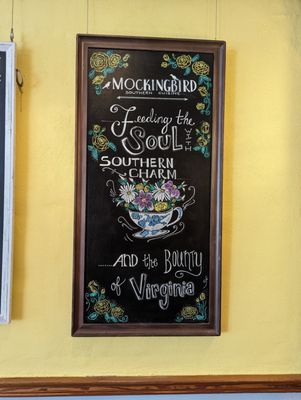 MOCKINGBIRD
SOUTHERN CUISINE
Feeding the
SOUL WITH
SOUTHERN
CHARM
......AND the Bounty
of Virginia